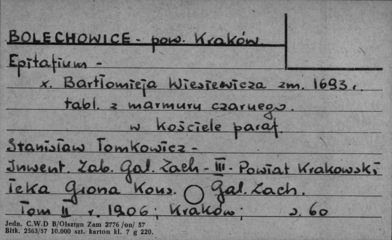 BOLECHOWICE - pow. Kraków.
Epitafium -
x. Bartłomieja Wiesiewicza zm. 1693 r.
tabl. z marmuru czarnego.
w kościele paraf.
Stanisław Tomkowicz -
Inwent. Zab. Gal. Zach - III - Powiat Krakowski
Teka Grona Kons. Gal. Zach.
Tom II r. 1906; Kraków; s. 60
Jedn. C.W.D R/Olsztyn Zam 2776 /on/ 57
Blisk. 2563/57 10.000 szt. karton kl. 7 g 220.